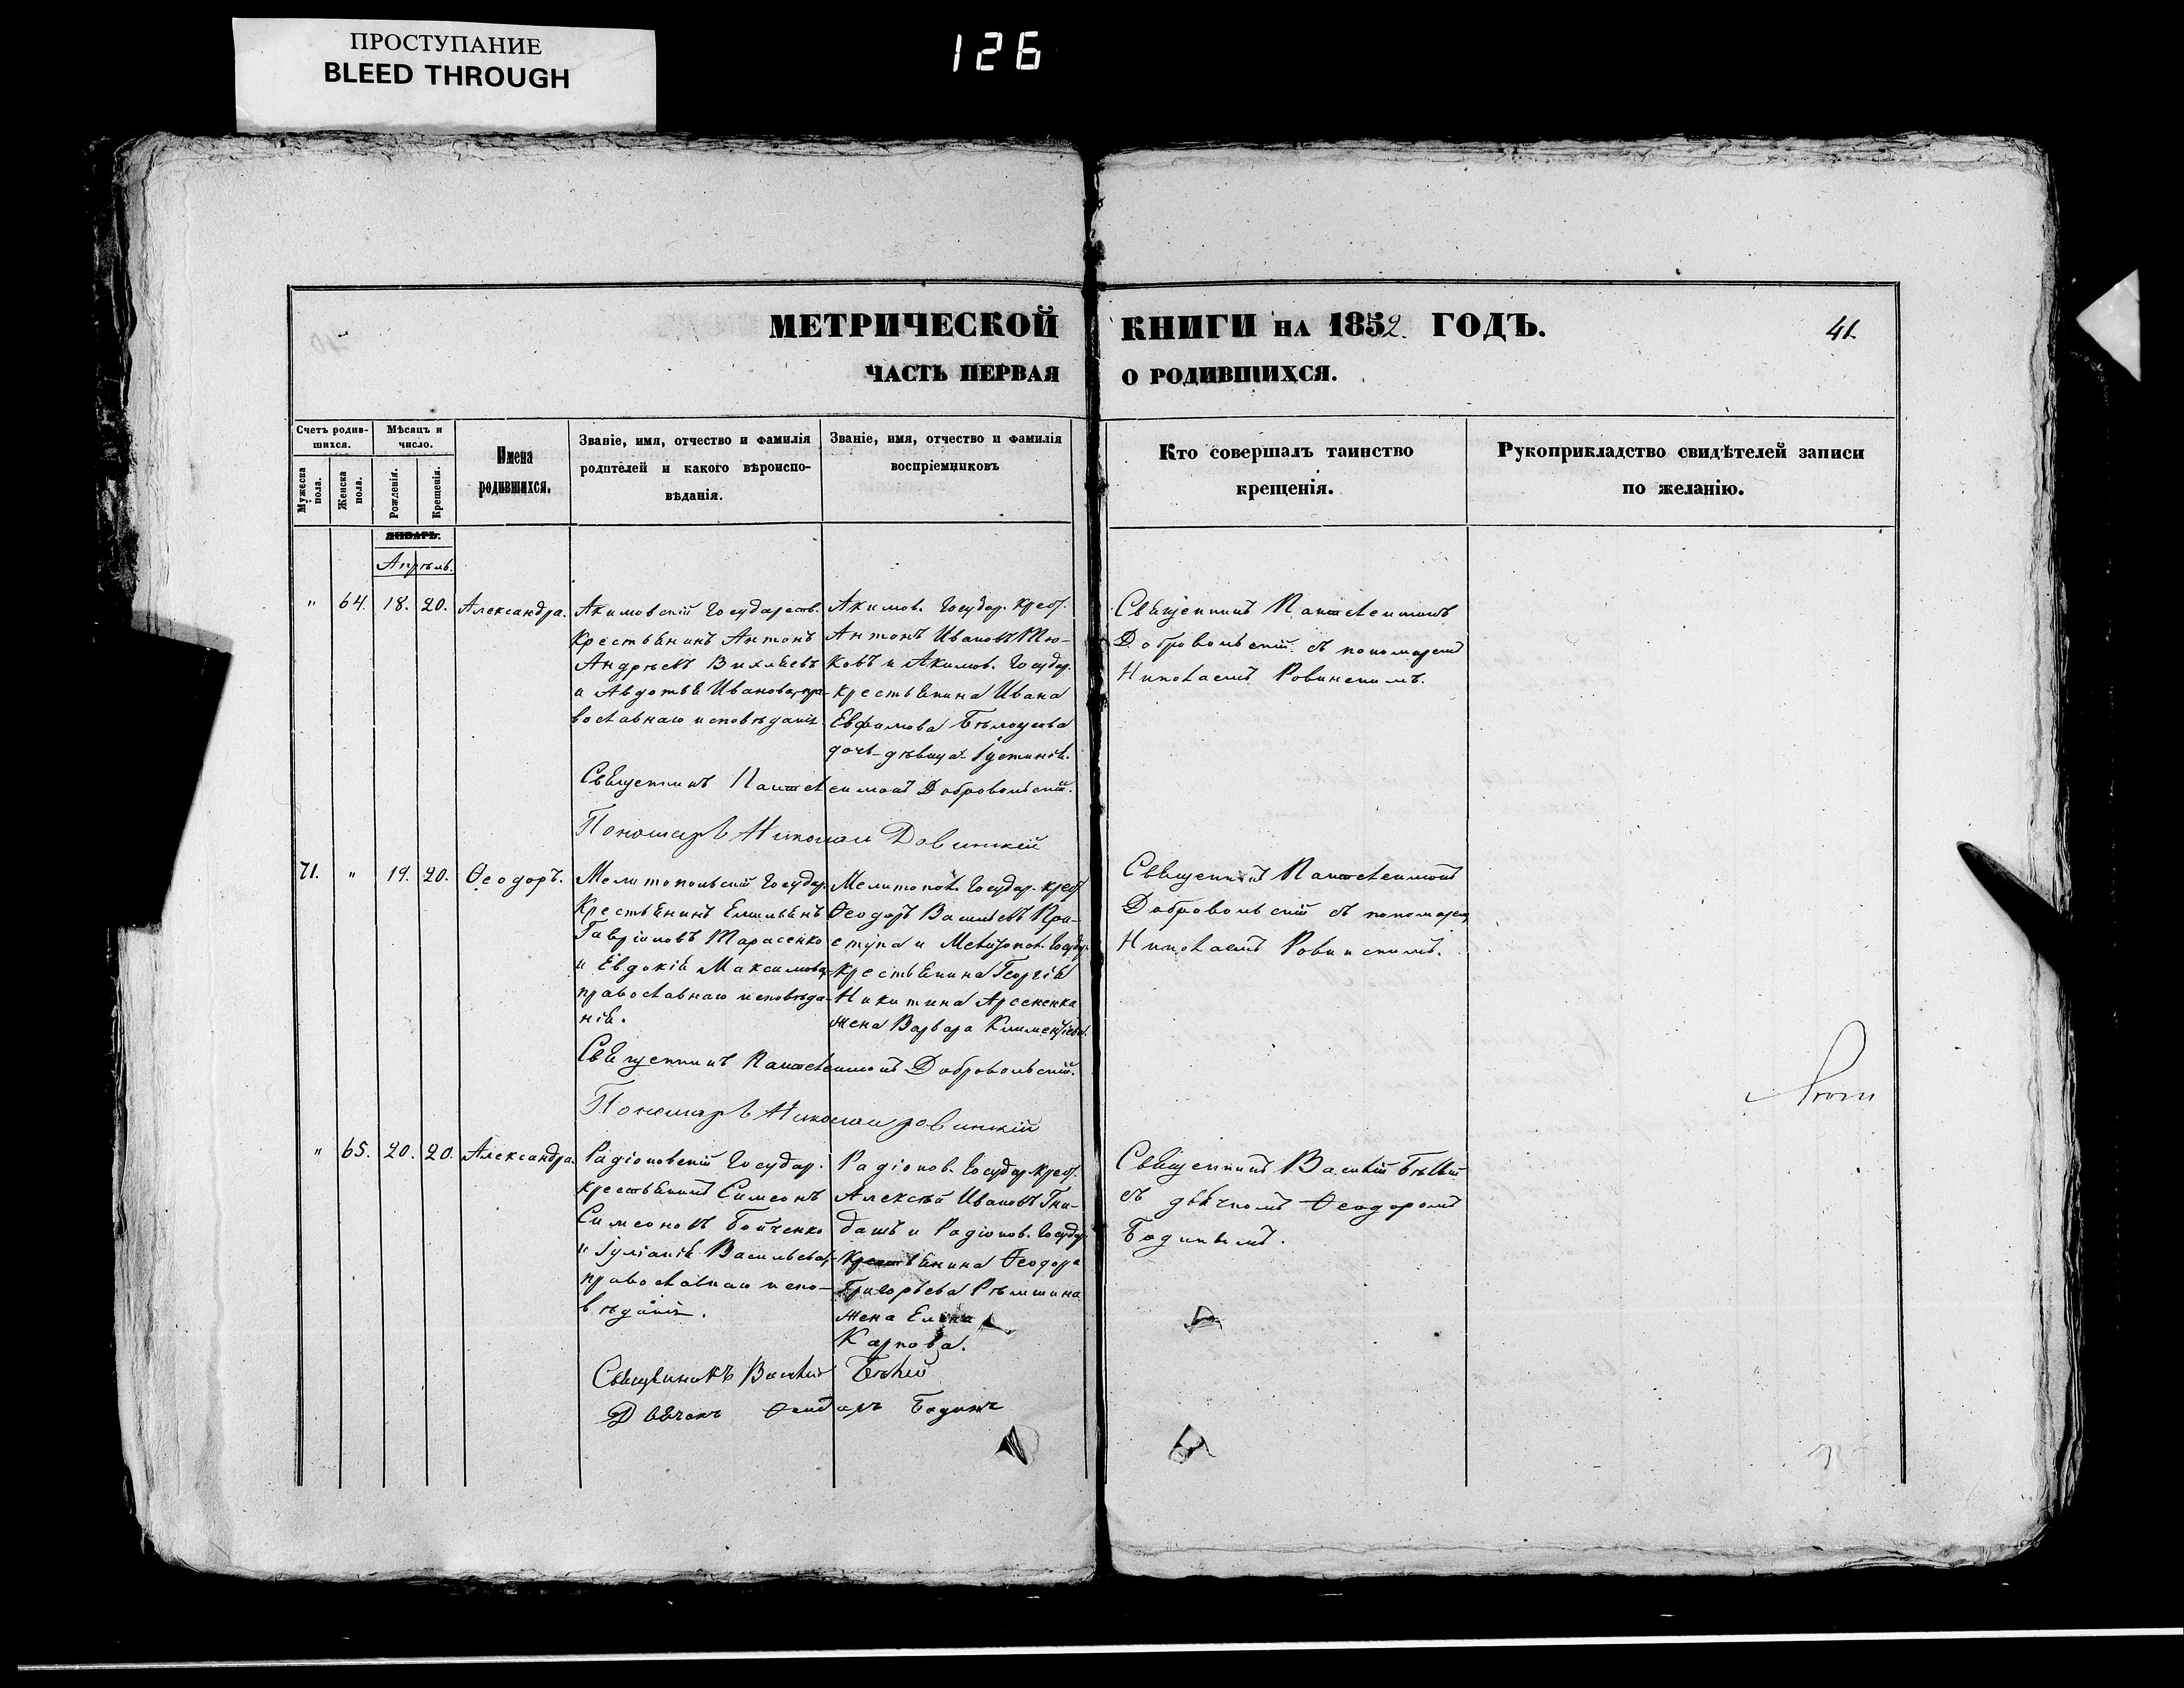 ПРОСТУПАНИЕ
BLEED THROUGH
126
МЕТРИЧЕСКОЙ КНИГИ НА 1852. ГОДЪ.
41.
ЧАСТЬ ПЕРВАЯ О РОДИВШИХСЯ.
Счетъ родив-
шихся.
Мужеска
пола.
Женска
пола.
Мѣсяцъ и
число.
Рожденія.
Крещенія.
Имена
родившихся.
Званіе, имя, отчество и фамилія
родителей и какого вѣроиспо-
вѣданія.
Званіе, имя, отчество и фамилія
воспріемниковъ
Кто совершалъ таинство
крещенія.
Рукоприкладство свидѣтелей записи
по желанію.
ЯНВАРЬ.
Апрѣль.
" 64. 18. 20. Александра.
Акимовскій Государств.
Крестьянинъ Антонъ
Андрѣевъ Вихляевъ
и Авдотья Иванова, пра-
вославнаго исповѣданія
Акимов. Государ. крест.
Антонъ Ивановъ
ковъ и Акимов. Государ.
крестьянина Ивана
Евфимова Бѣлоусова
дочь-дѣвица Іустинія.
Священникъ Пантелеимонъ
Добровольскій съ пономаремъ
Николаемъ Ровинскимъ.
Священникъ Пантелеимонъ Добровольскій.
Пономарь Николай Ровинскій
71. " 19. 20. Ѳеодоръ.
Мелитопольскій Государ.
Крестьянинъ Емильянъ
Гавріиловъ Тарасенко
и Евдокія Максимова,
православнаго исповѣда-
нія.
Мелитопол. Государ. крест
Ѳеодоръ Васильевъ При-
ступа и Мелитопол. Государ.
крестьянина Георгія
Никитина Арсененка
жена Варвара Климентіева.
Священникъ Пантелеимонъ
Добровольскій съ пономаремъ
Николаемъ Ровинскимъ.
Священникъ Пантелеимонъ Добровольскій.
Пономарь Николай Ровинскій
" 65. 20. 20. Александра.
Радіоновскій Государ.
крестьянинъ Симеонъ
Симеоновъ Бойченко
и Іуліанія Васильева,
православнаго испо-
вѣданія.
Радіонов. Государ. крест.
Алексѣй Ивановъ Гни-
дашъ и Радіонов. Государ.
Крестьянина Ѳеодора
Григорьева
жена Елена
Карпова.
Священникъ Василій Бѣлый
съ дьячкомъ Ѳеодоромъ
Бодинымъ.
Священникъ Василій Бѣлый
Дьячекъ Феодоръ Бодинъ